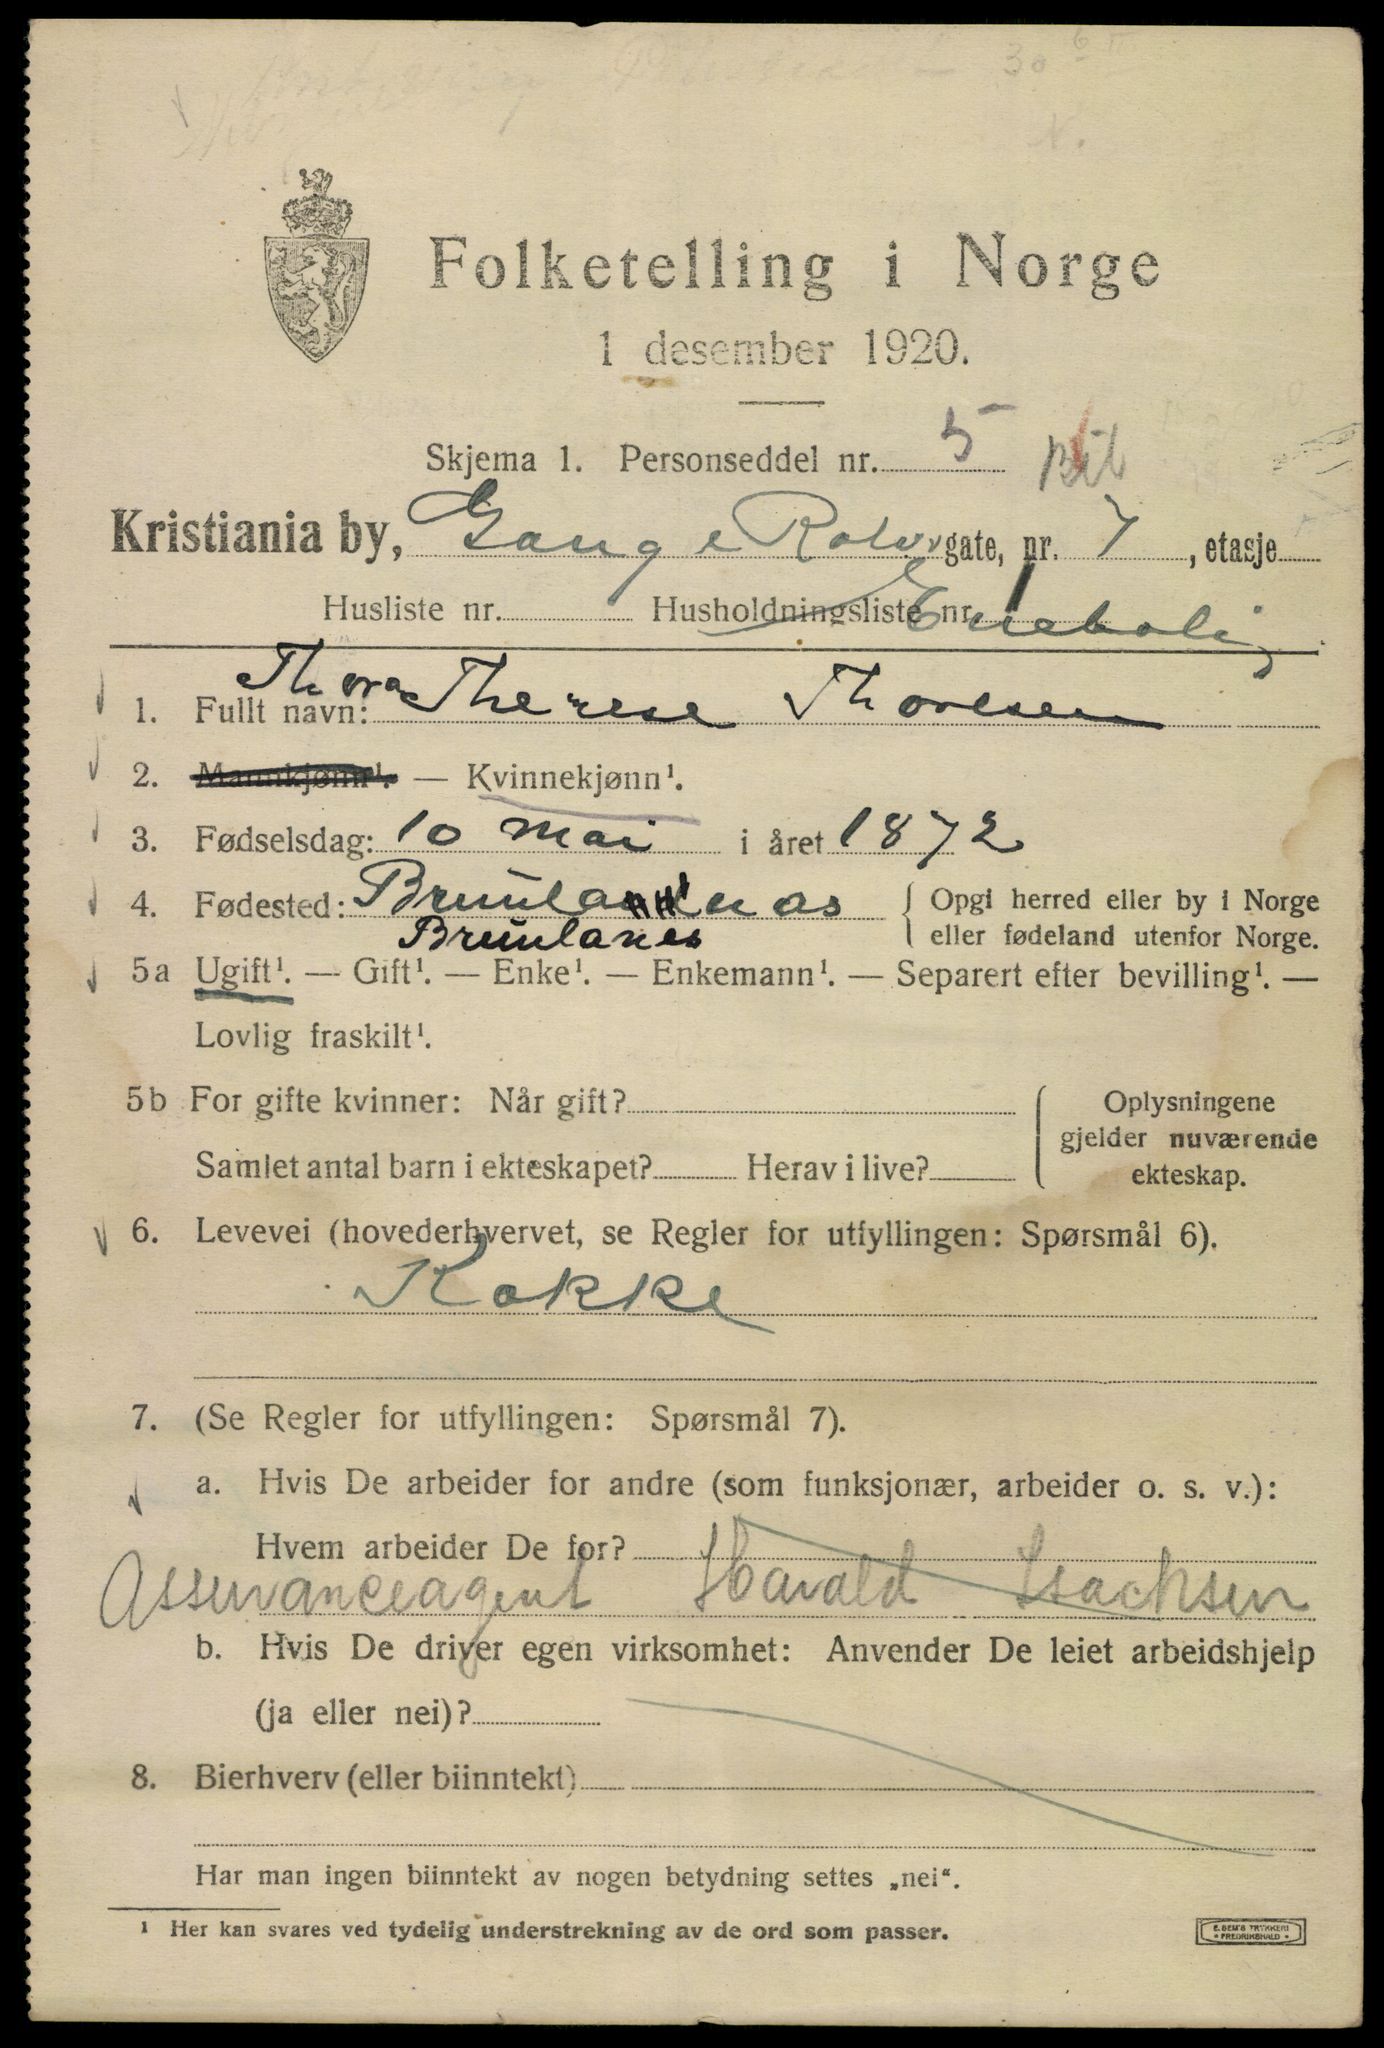 30
Folketelling i Norge
1 desember 1920.
Skjema 1. Personseddel nr. 5
Kristiania by, Gange Rolvs gate, nr. 7, etasje
Husliste nr. Husholdningsliste nr. 1 Enebolig
Thora
1. Fullt navn: Therese Thoresen
2. Mannkjønn¹. — Kvinnekjønn¹.
3. Fødselsdag: 10 mai i året 1872
4. Fødested: Brunlanenas { Opgi herred eller by i Norge
eller fødeland utenfor Norge.
Brunlanes
5a Ugift¹. — Gift¹. — Enke¹. — Enkemann¹. — Separert efter bevilling¹. —
Lovlig fraskilt¹.
5b For gifte kvinner: Når gift? { Oplysningene
gjelder nuværende
Samlet antal barn i ekteskapet? Herav i live? ekteskap.
6. Levevei (hovederhvervet, se Regler for utfyllingen: Spørsmål 6).
Kokke
7. (Se Regler for utfyllingen: Spørsmål 7).
a. Hvis De arbeider for andre (som funksjonær, arbeider o. s. v.):
Hvem arbeider De for?
Assuranceagent Harald Isachsen
b. Hvis De driver egen virksomhet: Anvender De leiet arbeidshjelp
(ja eller nei)?
8. Bierhverv (eller biinntekt)
Har man ingen biinntekt av nogen betydning settes „nei“.
¹ Her kan svares ved tydelig understrekning av de ord som passer.
E. SEM'S TRYKKERI
FREDRIKSHALD